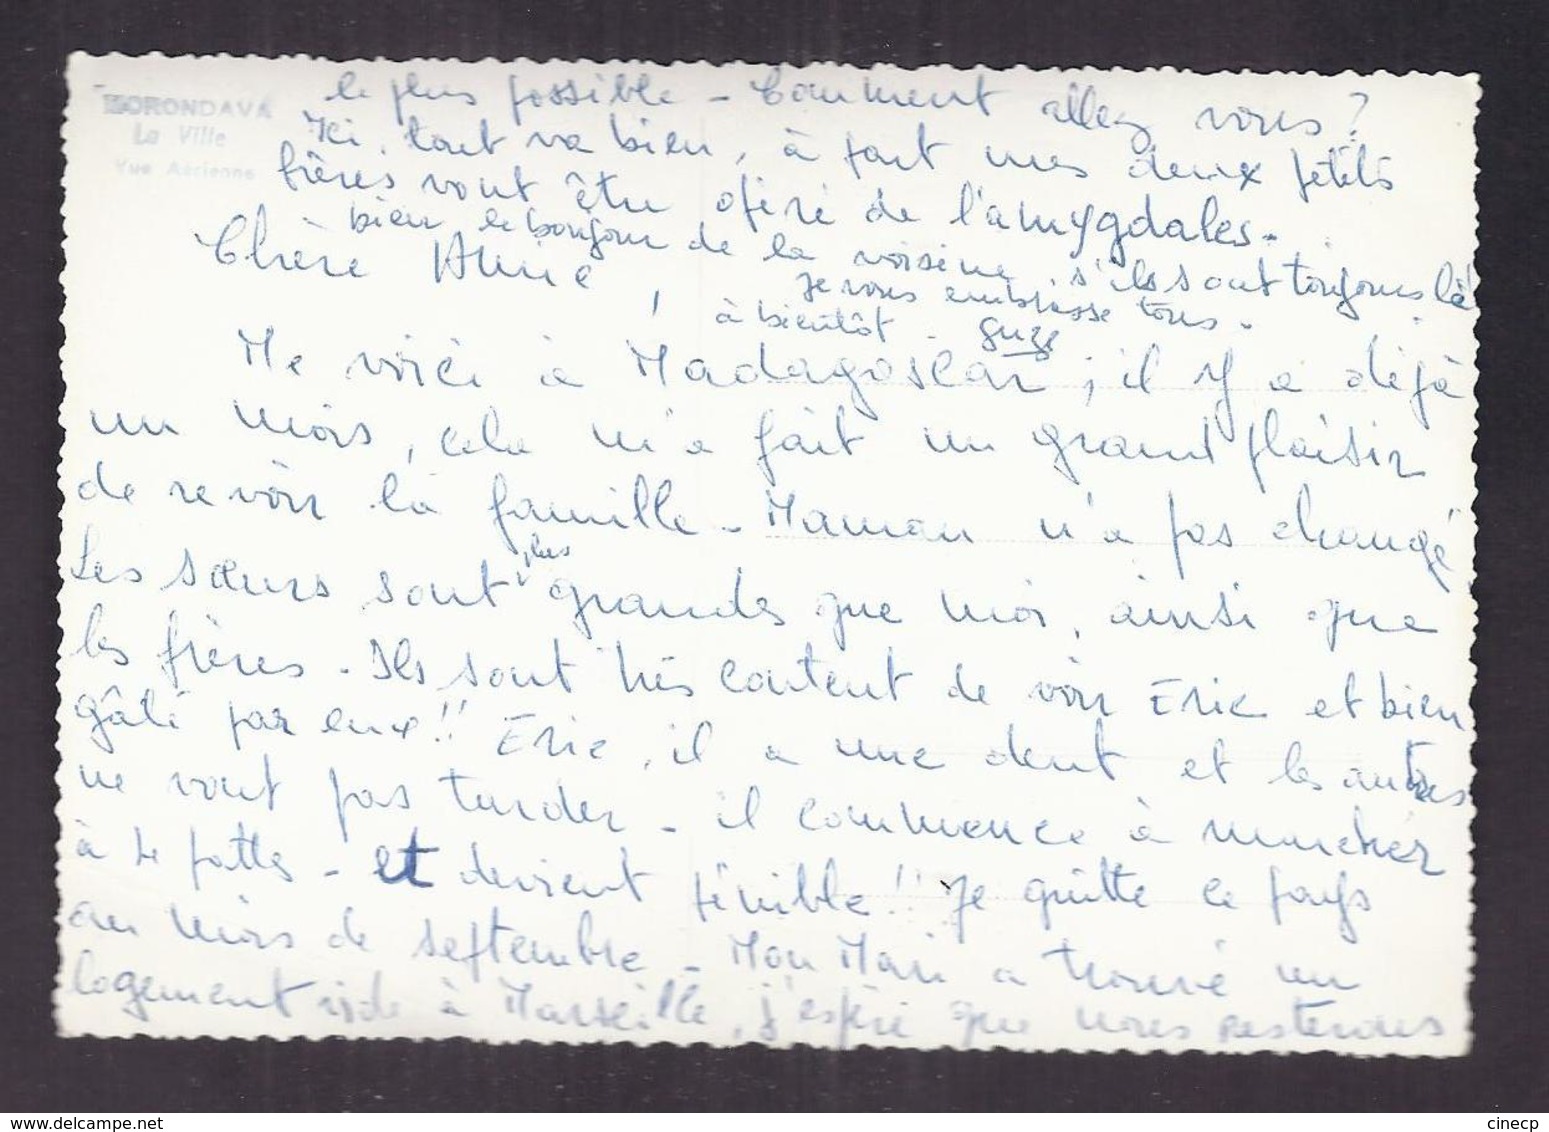 MORONDAVA
La Ville
Vue Aérienne
le plus possible - Comment allez vous ?
Ici, tout va bien, à part mes deux petits
frères vont être opéré de l'amygdales -
bien le bonjour de la voisine, s'ils sont toujours là
Je vous embrasse tous -
à bientôt -
Chère Anne,
Me voici à Madagascar ; il y a déjà
un mois, cela m'a fait un grand plaisir
de revoir la famille - Maman n'a pas changé
Les sœurs sont plus grandes que moi, ainsi que
les frères - Ils sont très content de voir Eric et bien
gâté par eux !! Eric, il a une dent et les autres
ne vont pas tarder - il commence à marcher
à 4 pattes - et devient pénible !! Je quitte ce pays
au mois de septembre - Mon Mari a trouvé un
logement vide à Marseille, j'espère que nous resterons
cinecp
www.delcampe.net